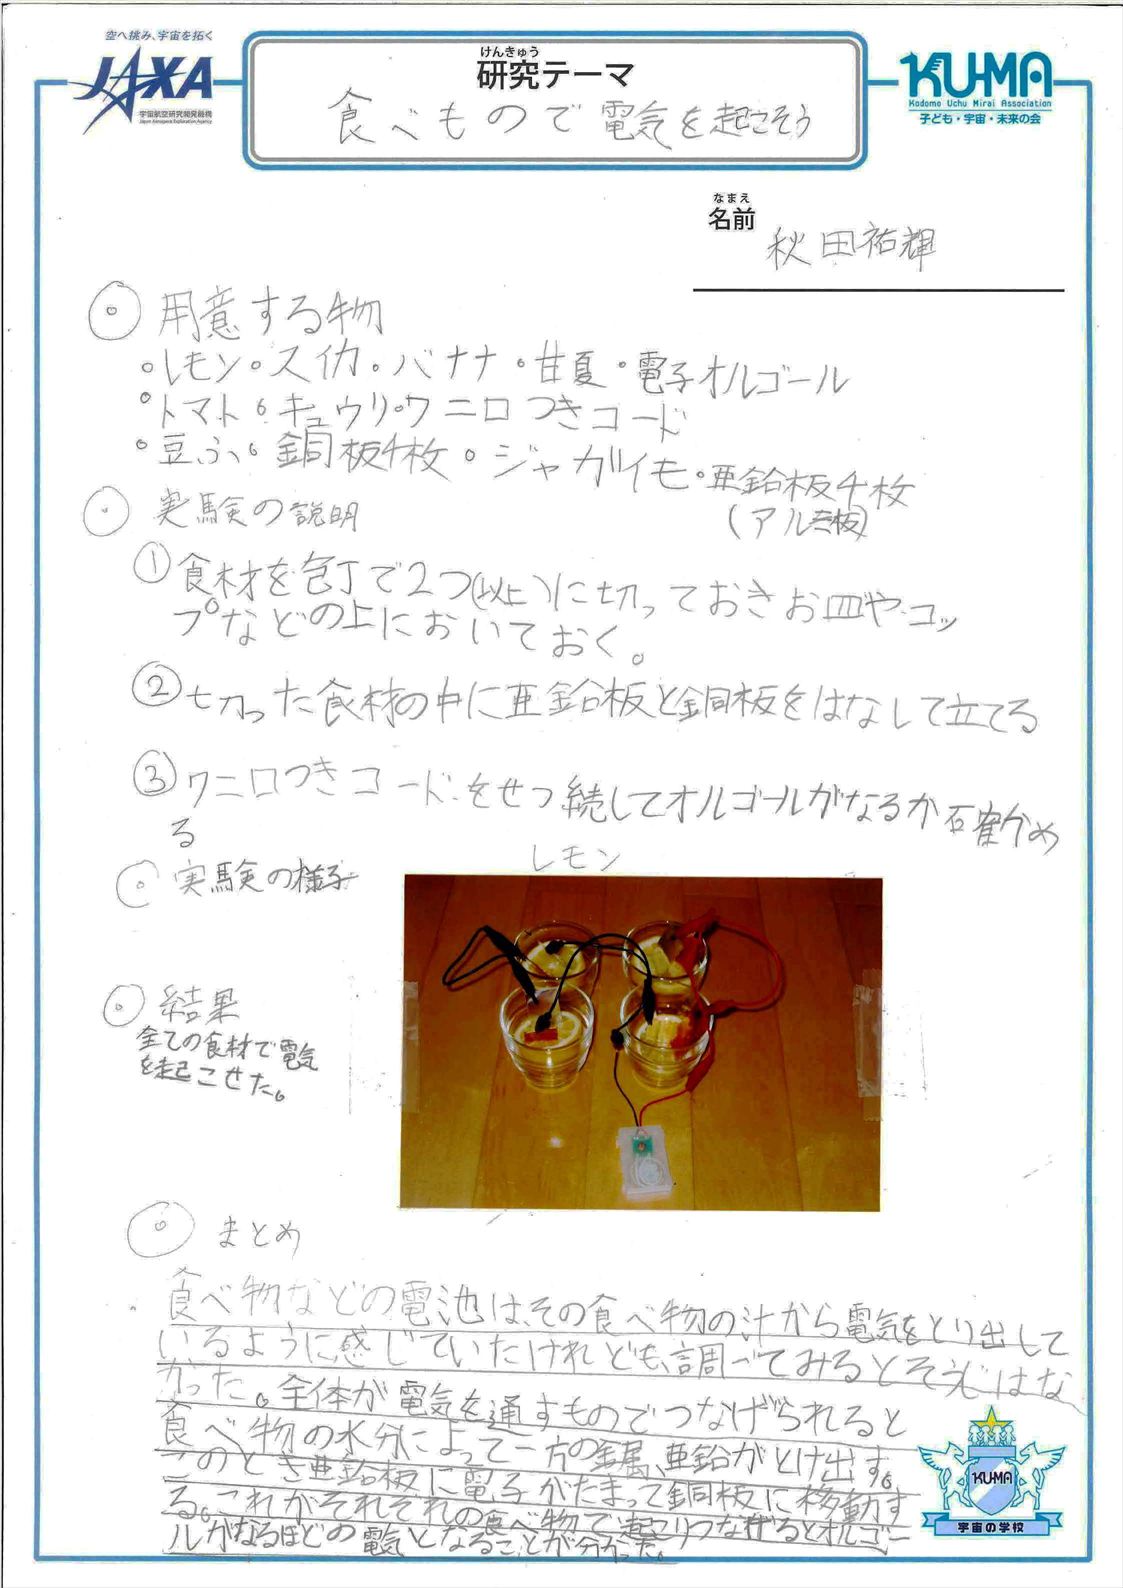 空へ挑み、宇宙を拓く
JAXA
宇宙航空研究開発機構
Japan Aerospace Exploration Agency
けんきゅう
研究テーマ
食べもので電気を起こそう
KU-MA
Kodomo Uchu Mirai Association
子ども・宇宙・未来の会
なまえ
名前
秋田祐輝
◎用意する物
・レモン・スイカ・バナナ・甘夏・電子オルゴール
・トマト・キュウリ・ワニ口つきコード
・豆ふ・銅板4枚・ジャガイモ・亜鉛板4枚
(アルミ板)
◎実験の説明
①食材を包丁で2つ(以上)に切っておきお皿やコッ
プなどの上においておく。
②切った食材の中に亜鉛板と銅板をはなして立てる
③ワニ口つきコードをせつ続してオルゴールがなるか確かめ
る
◎実験の様子
レモン
◎結果
全ての食材で電気
を起こせた。
◎まとめ
食べ物などの電池は、その食べ物の汁から電気をとり出して
いるように感じていたけれども、調べてみるとそうじはな
かった。全体が電気を通すものでつなげられると
食べ物の水分によって一方の金属、亜鉛がとけ出す。
このとき亜鉛板に電子がたまって銅板に移動す
る。これがそれぞれの食べ物で起こりつなげるとオルゴー
ルがなるほどの電気となることが分かった。
KUMA
宇宙の学校